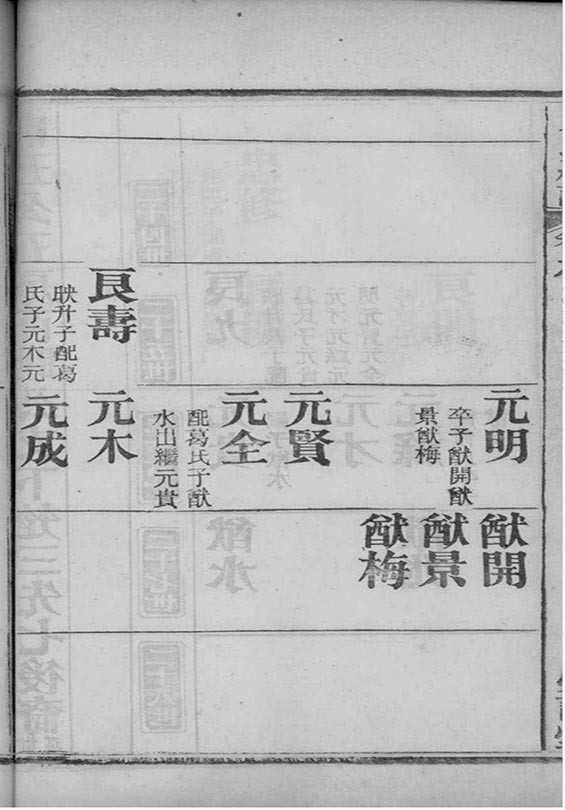 良壽
映升子配葛
氏子元木元
元明
卒子猷開猷
景猷梅
元賢
元全
配葛氏子猷
水出繼元貴
元木
元成
猷開
猷景
猷梅